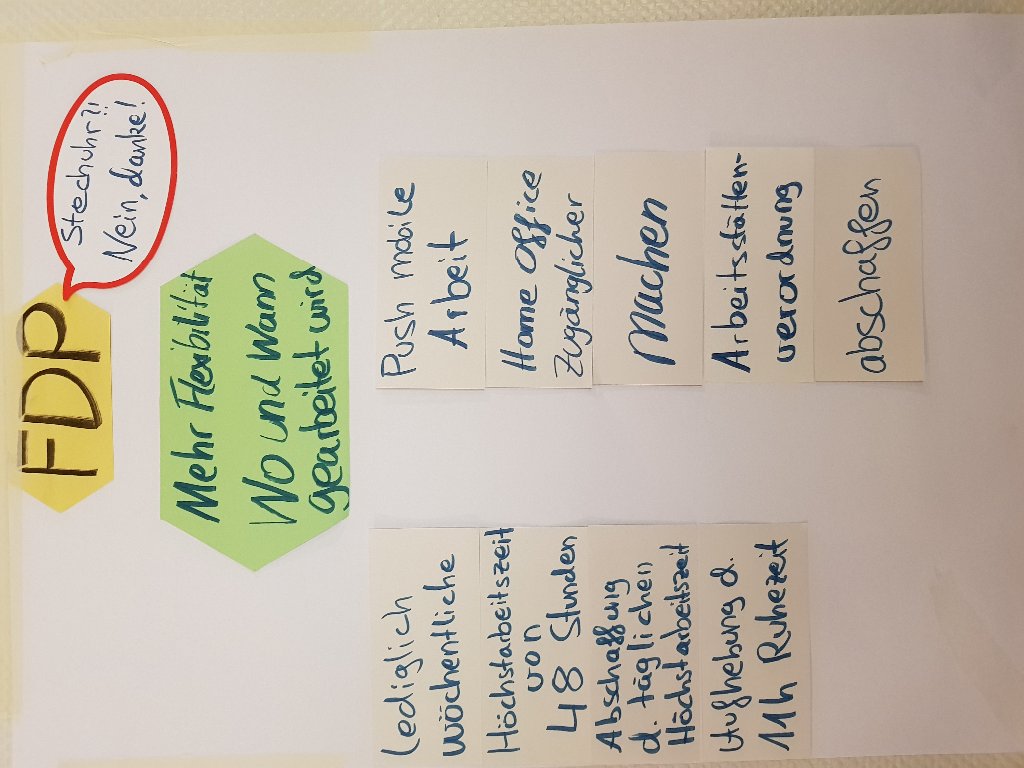 FDP
Stechuhr?!!
Nein, danke!
Mehr Flexibilität
Wo und Wann
gearbeitet wird
Lediglich
wöchentliche
Höchstarbeitszeit
von
48 Stunden
Abschaffung
d. täglichen
Höchstarbeitszeit
Aufhebung d.
11h Ruhezeit
Push mobile
Arbeit
Home Office
Zugänglicher
Machen
Arbeitsstätten-
verordnung
abschaffen